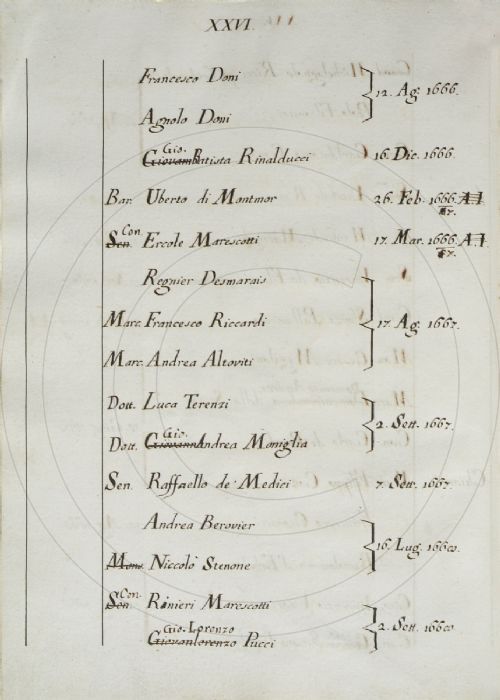 XXVI.
Francesco Doni
12. Ag: 1666.
Agnolo Doni
Gio.
Giovambatista Rinalducci 16. Dic. 1666.
Bar. Uberto di Montmor 26. Feb. 1666.
67.
Con.
Sen. Ercole Marescotti 17. Mar. 1666.
67.
Regnier Desmarais
Marc. Francesco Riccardi 17. Ag: 1667.
Marc. Andrea Altoviti
Dott. Luca Terenzi
2. Sett. 1667.
Gio.
Dott. Giovann Andrea Moniglia
Sen. Raffaello de' Medici 7. Sett. 1667.
Andrea Berovier
16. Lug. 1668.
Mons. Niccolò Stenone
Con.
Sen. Ranieri Marescotti
2. Sett. 1668.
Gio. Lorenzo
Giovanlorenzo Pucci